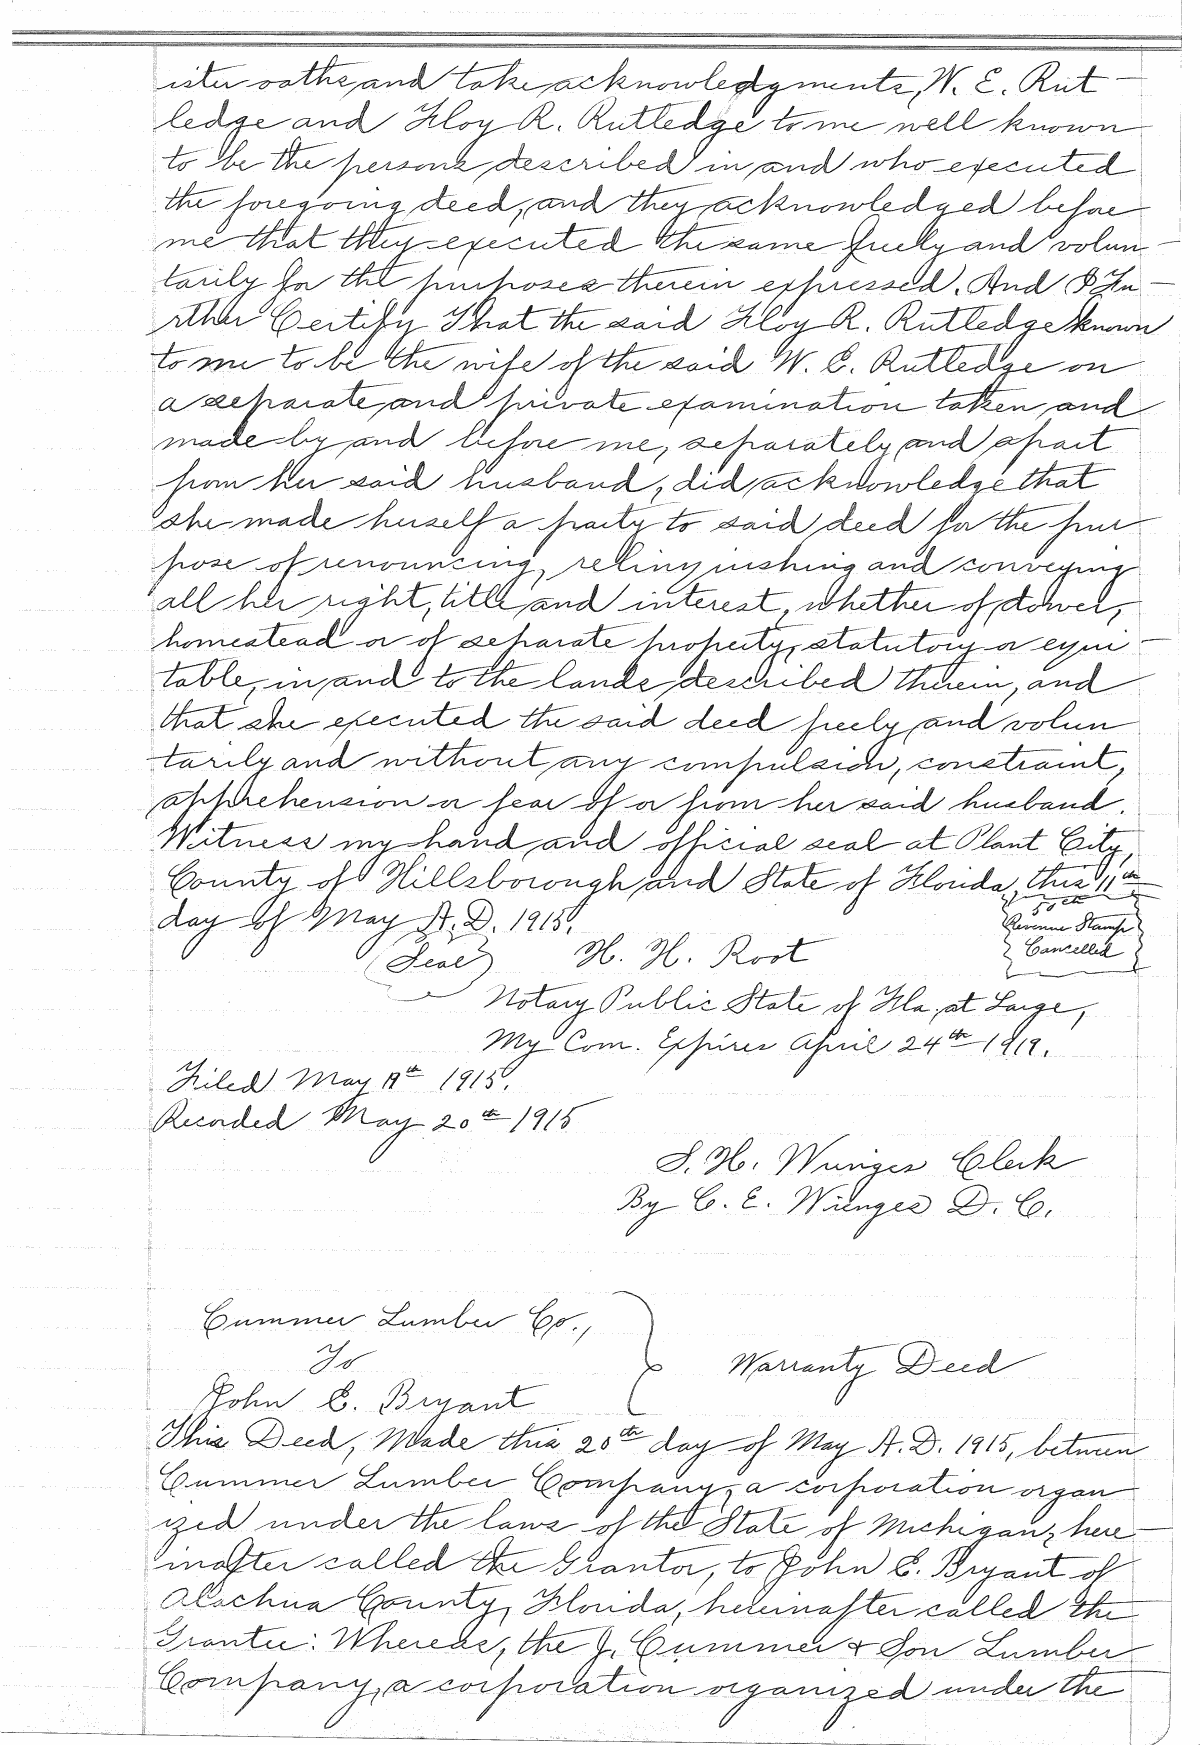 ister oaths and take acknowledgments, W. E. Rut-
ledge and Floy R. Rutledge to me well known
to be the persons described in and who executed
the foregoing deed, and they acknowledged before
me that they executed the same freely and volun-
tarily for the purposes therein expressed. And I Fu-
rther Certify That the said Floy R. Rutledge known
to me to be the wife of the said W. E. Rutledge on
a separate and private examination taken and
made by and before me, separately and apart
from her said husband, did acknowledge that
she made herself a party to said deed for the pur
pose of renouncing, relinquishing and conveying
all her right, title and interest, whether of dower,
homestead or of separate property, statutory or equi-
table, in and to the lands described therein, and
that she executed the said deed freely and volun
tarily and without any compulsion, constraint,
apprehension or fear of or from her said husband.
Witness my hand and official seal at Plant City,
County of Hillsborough and State of Florida, this 11th
day of May A. D. 1915.
50cts
Revenue Stamp
Cancelled
(Seal) H. H. Root
Notary Public State of Fla. at Large,
My Com. Expires April 24th 1919.
Filed May 19th 1915.
Recorded May 20th 1915
S. H. Wienges Clerk
By C. E. Wienges D. C.
Cummer Lumber Co.,
To
Warranty Deed
John E. Bryant
This Deed, Made this 20th day of May A. D. 1915, between
Cummer Lumber Company, a corporation organ
ized under the laws of the State of Michigan, here-
inafter called the Grantor, to John E. Bryant of
Alachua County, Florida, hereinafter called the
Grantee: Whereas, the J. Cummer & Son Lumber
Company, a corporation organized under the